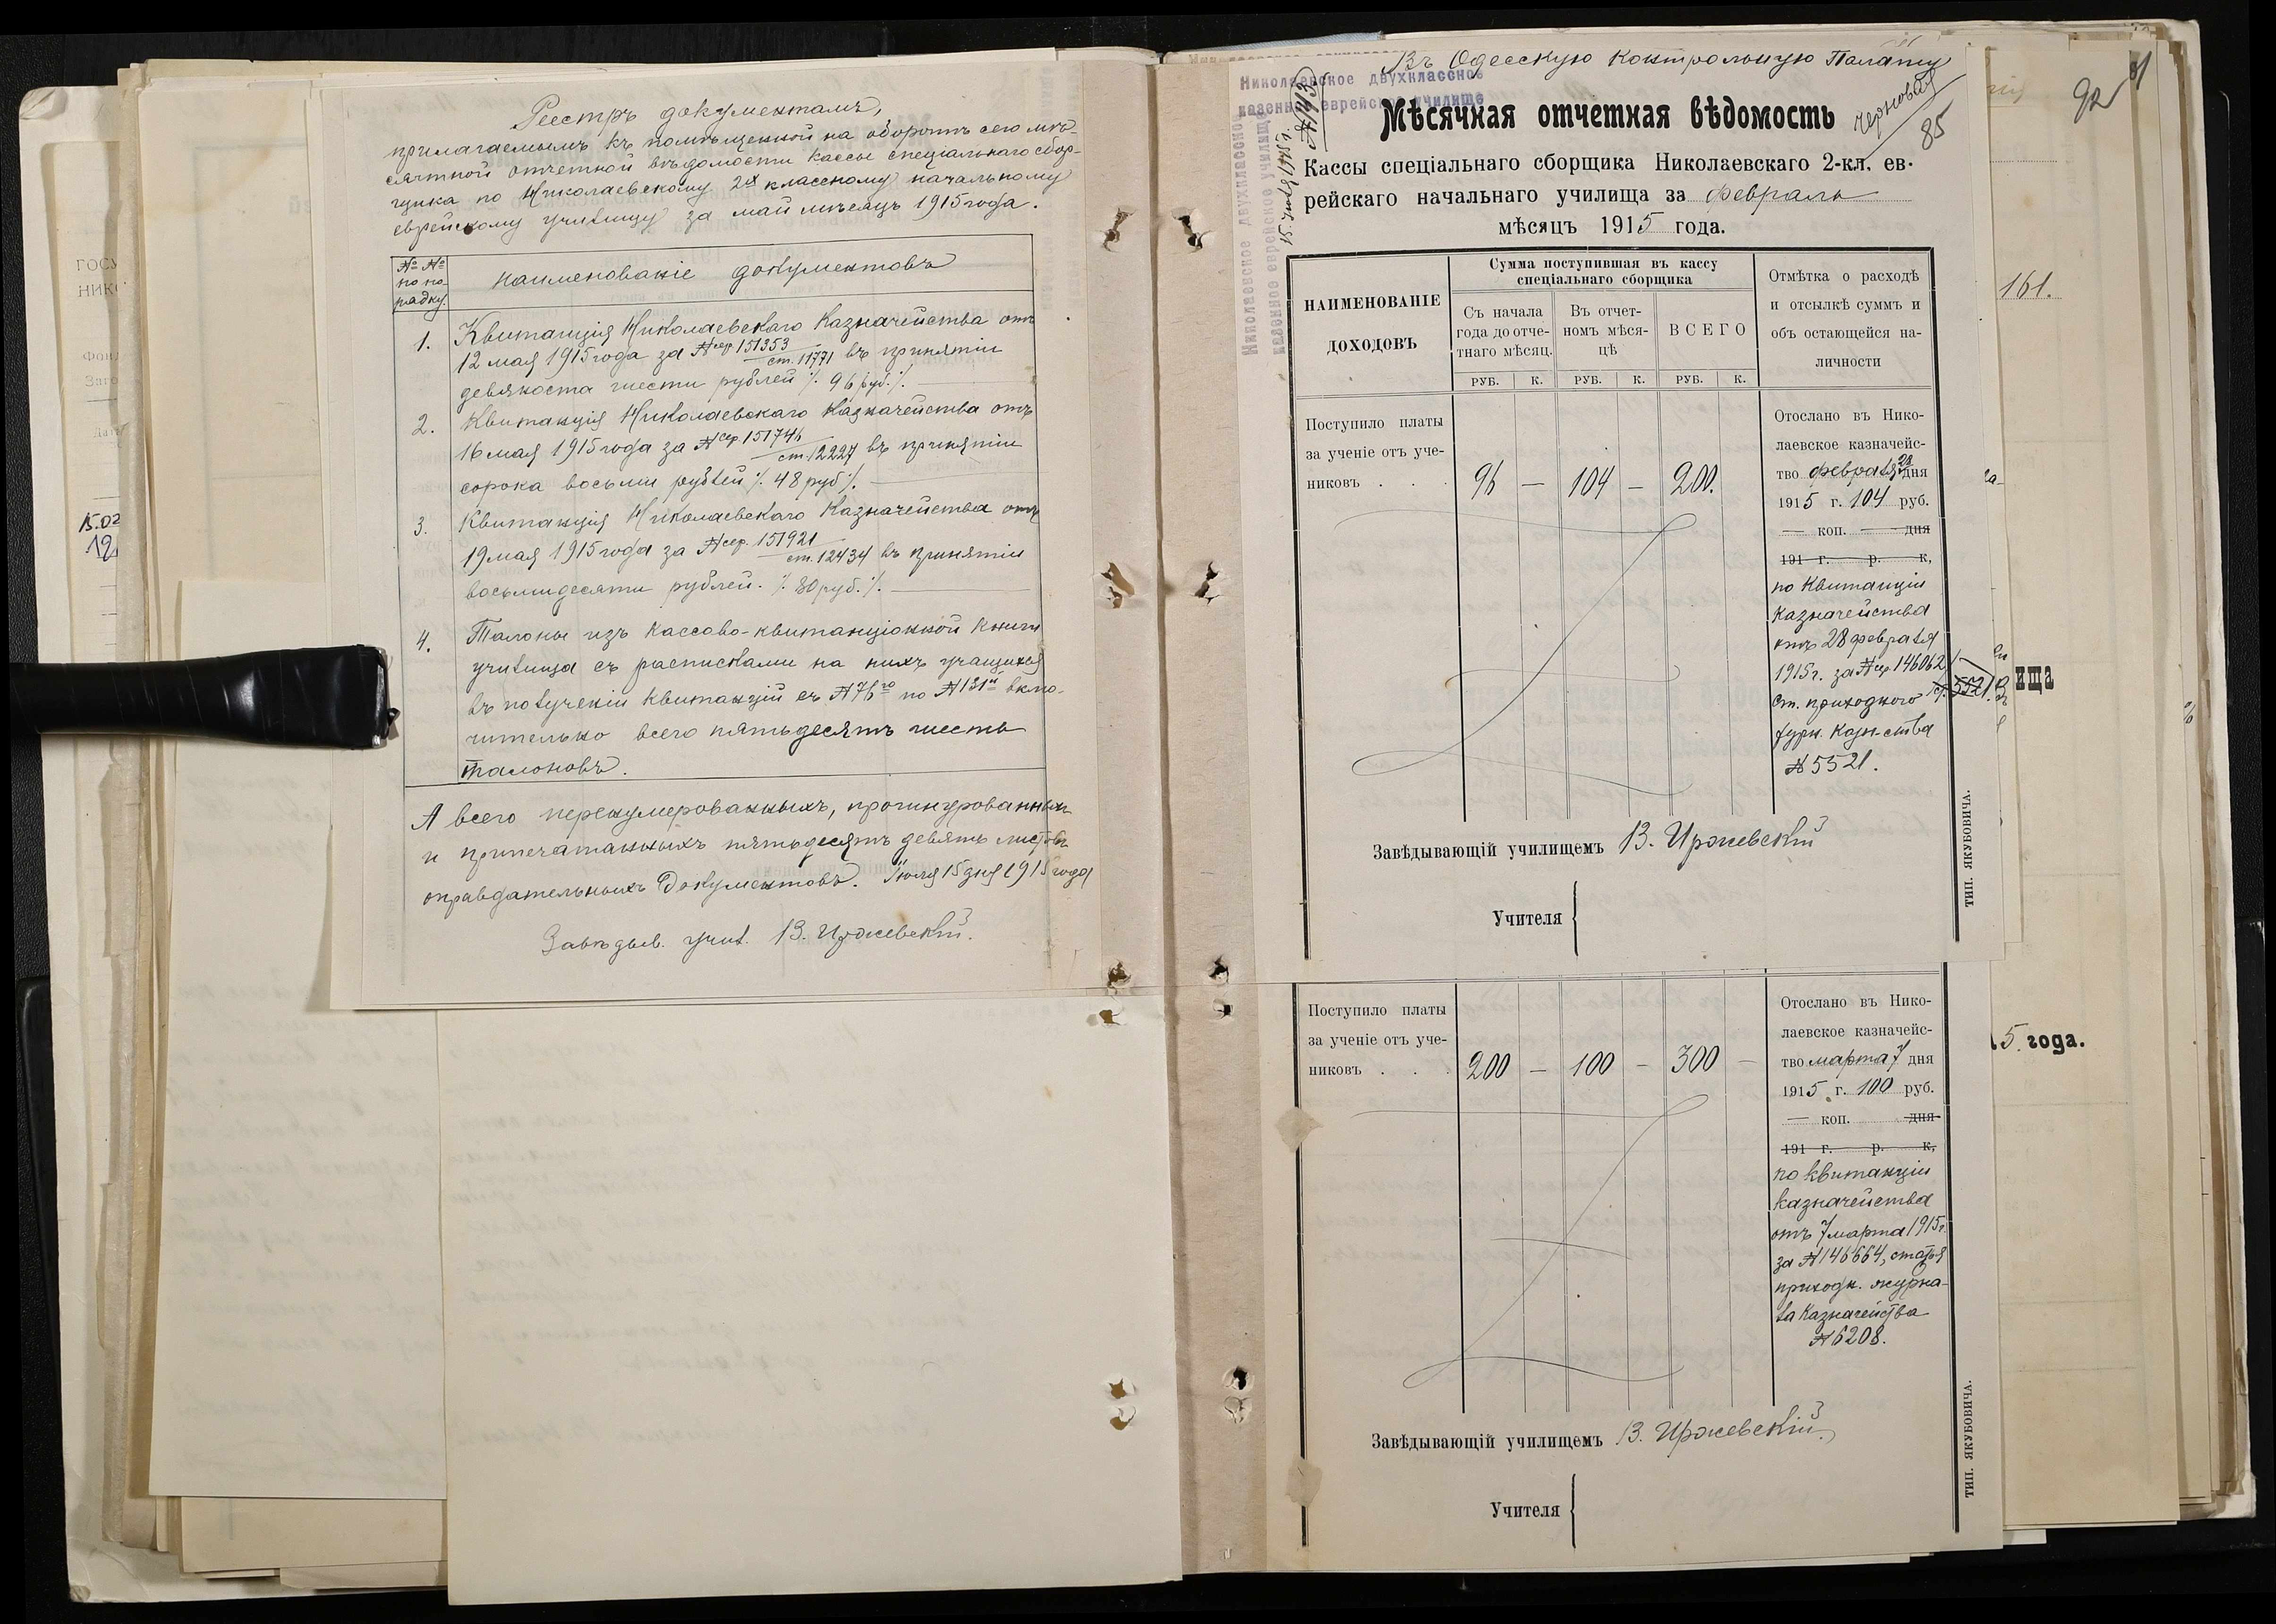 Реестръ документамъ,
прилагаемымъ къ помѣщенной на оборотѣ сего мѣ-
сячной отчетной вѣдомости кассы спеціальнаго сбор-
щика по Николаевскому 2х классному начальному
еврейскому училищу за май мѣсяцъ 1915 года.
№ №
по по-
рядку.
Наименованіе документовъ
1. Квитанція Николаевскаго Казначейства отъ
12 мая 1915 года за № сер. 151353
ст. 11771 въ принятіи
девяноста шести рублей ./. 96 руб. ./.
2. Квитанція Николаевскаго Казначейства отъ
16 мая 1915 года за № сер. 151746
ст. 12227 въ принятіи
сорока восьми рублей ./. 48 руб ./.
3. Квитанція Николаевскаго Казначейства отъ
19 мая 1915 года за № сер. 151921
ст. 12434 въ принятіи
восьмидесяти рублей. ./. 80 руб. ./.
4. Талоны изъ кассово-квитанціонной книги
училища съ расписками на нихъ учащихся
въ полученіи квитанцій съ № 76го по № 131й вклю-
чительно всего пятьдесятъ шесть
талоновъ.
А всего перенумерованныхъ, прошнурованныхъ
и припечатанныхъ пятьдесятъ девять листовъ
оправдательныхъ документовъ. Іюля 15 дня 1915 года
Завѣдыв. учил. В. Иржевскій.
Въ Одесскую Контрольную Палату
Николаевское двухклассное
казенное еврейское училище
Николаевское двухклассное
казенное еврейское училище
№ 143
15 1915 г.
черновая
85
Мѣсячная отчетная вѣдомость
Кассы спеціальнаго сборщика Николаевскаго 2-кл. ев-
рейскаго начальнаго училища за февраль
мѣсяцъ 1915 года.
НАИМЕНОВАНІЕ
ДОХОДОВЪ
Сумма поступившая въ кассу
спеціальнаго сборщика
Съ начала
года до отче-
тнаго мѣсяц.
Въ отчет-
номъ мѣся-
цѣ
ВСЕГО
РУБ. К. РУБ. К. РУБ. К.
Отмѣтка о расходѣ
и отсылкѣ суммъ и
объ остающейся на-
личности
Поступило платы
за ученіе отъ уче-
никовъ . . .
96 — 104 — 200.
Отослано въ Нико-
лаевское казначейс-
тво февраля 28 дня
1915 г. 104 руб.
— коп. — дня
191 г. р. к,
по Квитанціи
Казначейства
отъ 28 февраля
1915 г. за № сер. 146062
ст. приходного
журн. Казн-ства
№ 5521.
Завѣдывающій училищемъ В. Иржевскій
Учителя
ТИП. ЯКУБОВИЧА.
Поступило платы
за ученіе отъ уче-
никовъ . . .
200 — 100 — 300 —
Отослано въ Нико-
лаевское казначейс-
тво марта 7 дня
1915 г. 100 руб.
— коп. дня
191 г. р. к,
по квитанціи
казначейства
отъ 7 марта 1915 г.
за № 146664, статья
приходн. журна-
ла Казначейства
№ 6208.
Завѣдывающій училищемъ В. Иржевскій.
Учителя
ТИП. ЯКУБОВИЧА.
92
161.
ища
5 года.
ГОСУ
НИКО
Фон
Заго
Дат
15.02